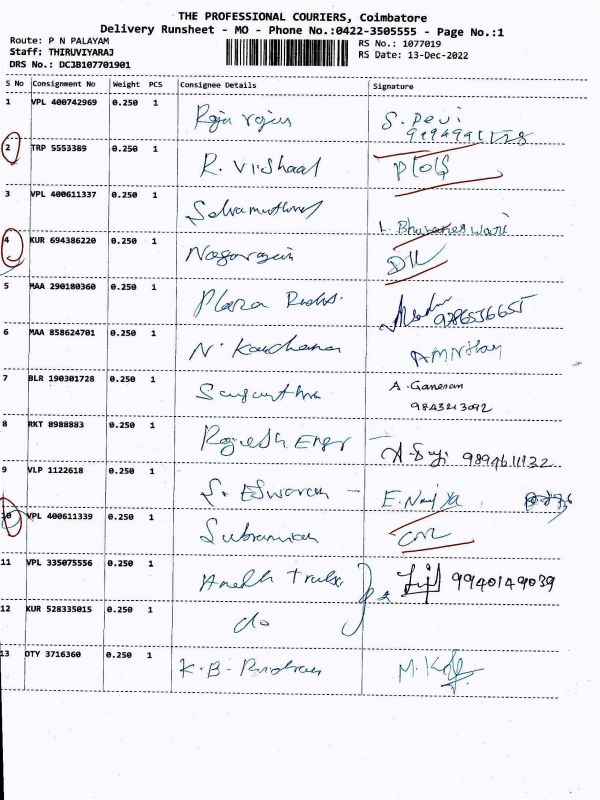 THE PROFESSIONAL COURIERS, Coimbatore
Delivery Runsheet - MO - Phone No.:0422-3505555 - Page No.:1
Route: P N PALAYAM
RS No.: 1077019
Staff: THIRUVIYARAJ
RS Date: 13-Dec-2022
DRS No.: DCJB107701901
S No Consignment No Weight PCS Consignee Details Signature
1 VPL 400742969 0.250 1 Raja rajan S. Devi
2 TRP 5553389 0.250 1 R. Vishaal
3 VPL 400611337 0.250 1 Selvamuthu L. Bhuvaneswari
4 KUR 694386220 0.250 1 Nagarajan
5 MAA 290180360 0.250 1 Plaza 9786536655
6 MAA 858624701 0.250 1 N. Kanchana
7 BLR 190301728 0.250 1 A. Ganesan
9843213092
8 RKT 8988883 0.250 1 Rajesh Engr 9894611132
9 VLP 1122618 0.250 1 S. Eswaran -
10 VPL 400611339 0.250 1 Subramian
11 VPL 335075556 0.250 1 9940149039
12 KUR 528335015 0.250 1 do
13 OTY 3716360 0.250 1 K. B.